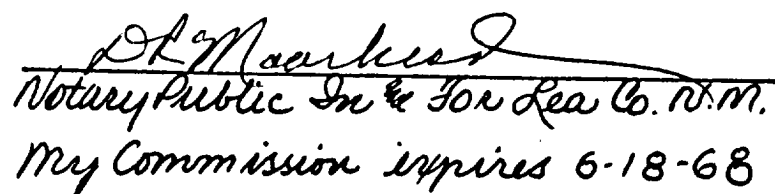 DR Moorhead
Notary Public In & For Lea Co. N.M.
My Commission expires 6-18-68